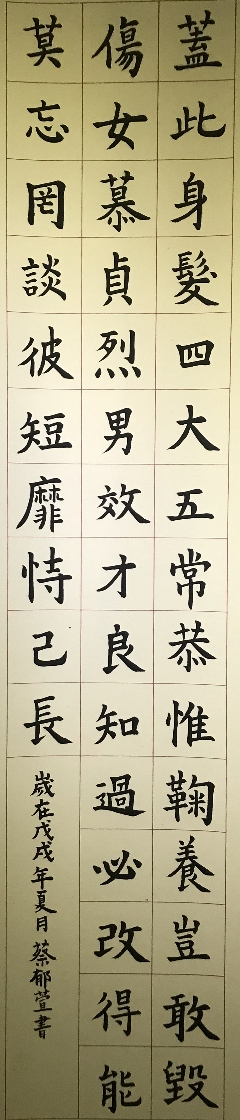 蓋此身髮四大五常恭惟鞠養豈敢毀
傷女慕貞烈男效才良知過必改得能
莫忘罔談彼短靡恃己長
歲在戊戌年夏月蔡郁萱書